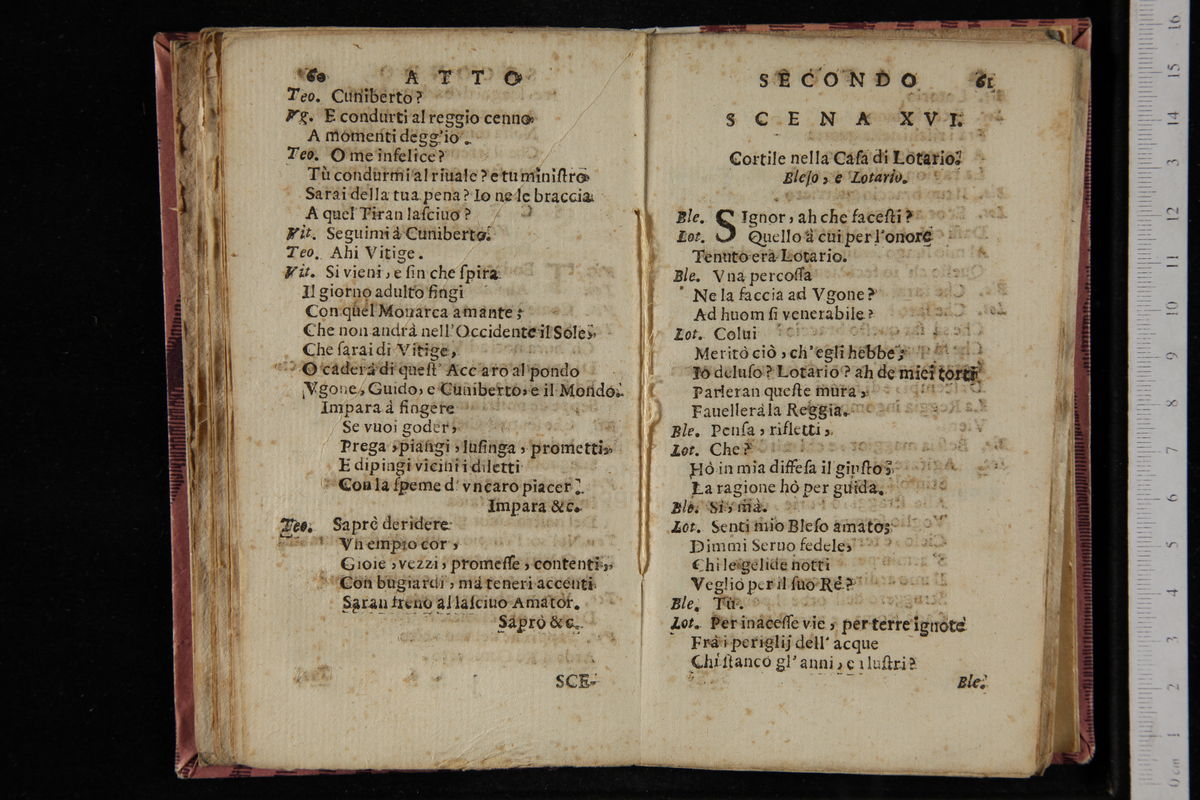 60 ATTO
Teo. Cuniberto?
Vg. E condurti al reggio cenno
A momenti degg'io.
Teo. O me infelice?
Tù condurmi al riuale? e tu miniſtro
Sarai della tua pena? Io ne le braccia
A quel Tiran laſciuo?
Vit. Seguimi à Cuniberto.
Teo. Ahi Vitige.
Vit. Si vieni, e ſin che ſpira
Il giorno adulto fingi
Con quel Monarca amante;
Che non andrà nell'Occidente il Sole,
Che ſarai di Vitige,
O caderà di queſt' Acc aro al pondo
Vgone, Guido, e Cuniberto, e il Mondo.
Impara à fingere
Se vuoi goder,
Prega, piangi, luſinga, prometti,
E dipingi vicini i diletti
Con la ſpeme d' vn caro piacer.
Impara &c.
Teo. Saprò deridere
Vn empio cor,
Gioie, vezzi, promeſſe, contenti,
Con bugiardi, mà teneri accenti
Saran freno al laſciuo Amator.
Saprò &c.
SCE-
SECONDO 61
SCENA XVI.
Cortile nella Caſa di Lotario.
Bleſo, e Lotario.
Ble. SIgnor, ah che faceſti?
Lot. Quello à cui per l'onore
Tenuto era Lotario.
Ble. Vna percoſſa
Ne la faccia ad Vgone?
Ad huom ſi venerabile?
Lot. Colui
Meritò ciò, ch'egli hebbe;
Io deluſo? Lotario? ah de miei torti
Parleran queſte mura,
Fauellerà la Reggia.
Ble. Penſa, rifletti,
Lot. Che?
Hò in mia diffeſa il giuſto,
La ragione hò per guida.
Ble. Si, mà.
Lot. Senti mio Bleſo amato;
Dimmi Seruo fedele,
Chi le gelide notti
Vegliò per il ſuo Rè?
Ble. Tù.
Lot. Per inaceſſe vie, per terre ignote
Frà i periglij dell' acque
Chi ſtancò gl' anni, e i luſtri?
Ble.
16
15
14
13
12
11
10
9
8
7
6
5
4
3
2
1
0 cm